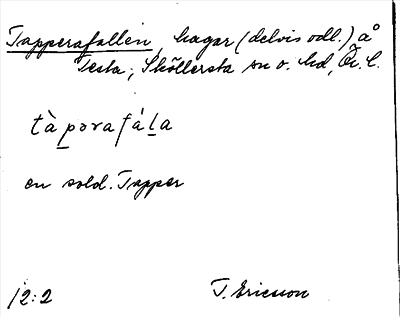 Tapperafallen, hagar (delvis odl.) å
Testa; Sköllersta sn o. hd, Ör. l.
tàpərafála
en sold. Tapper
12:2 T. Ericsson